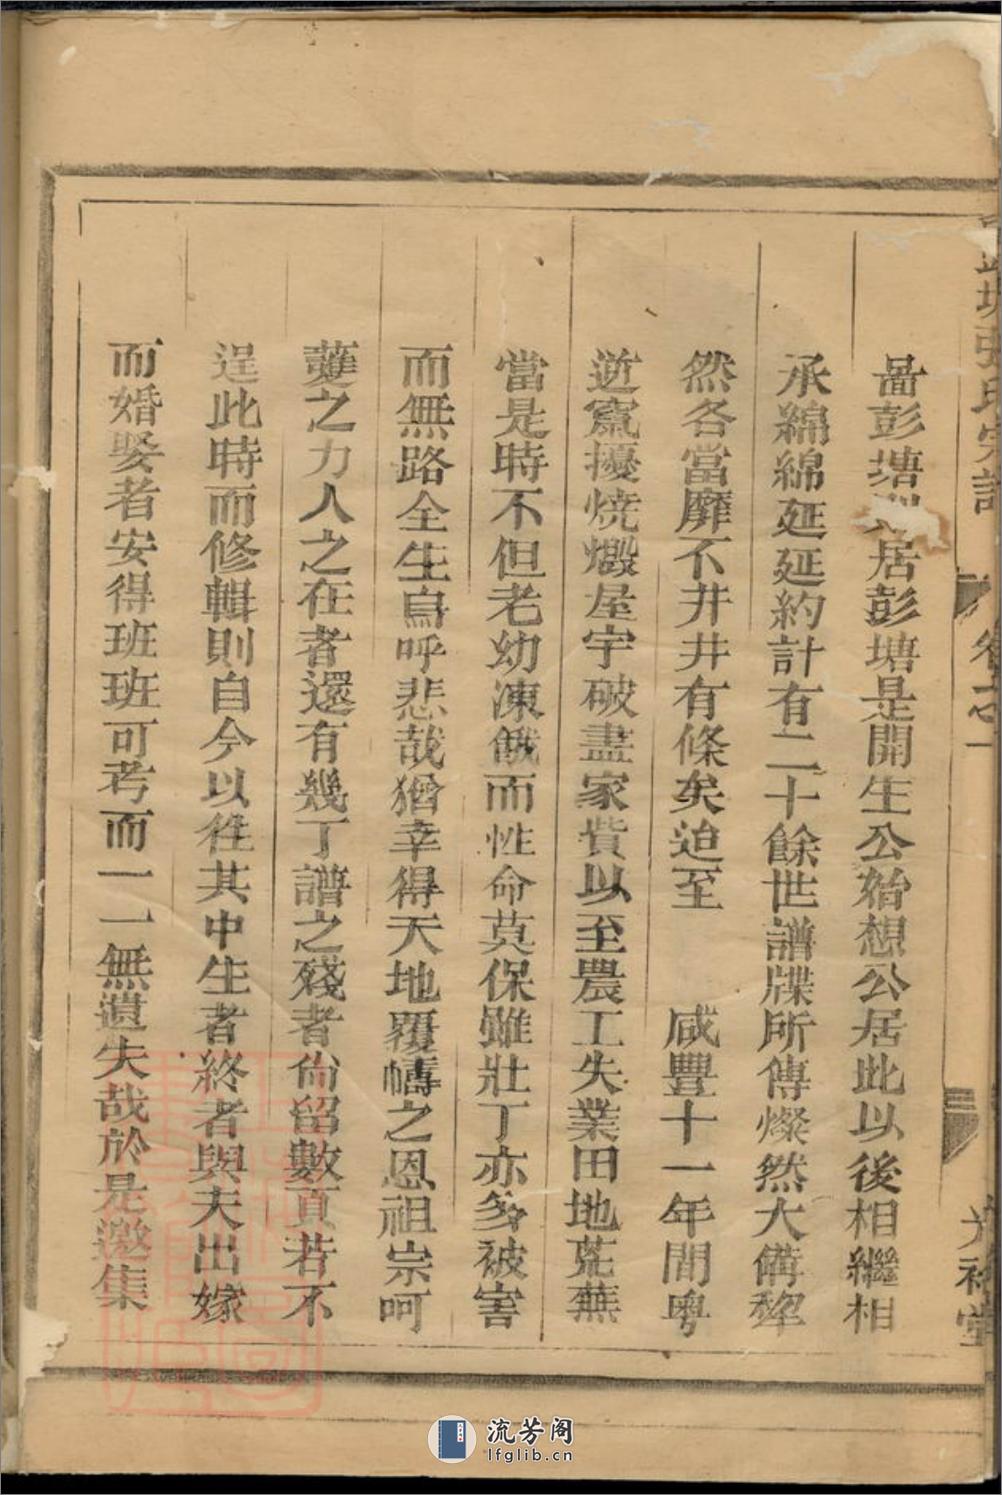 啚彭塘居彭塘是開生公始想公居此以後相繼相
承綿綿延延約計有二十餘世譜牒所傳燦然大備犂
然各當靡不井井有條矣迨至　咸豐十一年間粤
逆竄擾燒燬屋宇破盡家貲以至農工失業田地荒蕪
當是時不但老幼凍餓而性命莫保雖壯丁亦多被害
而無路全生烏呼悲哉猶幸得天地覆幬之恩祖宗呵
護之力人之在者還有幾丁譜之殘者尙留數頁若不
逞此時而修輯則自今以徃其中生者終者與夫出嫁
而婚娶者安得班班可考而一一無遺失哉於是邀集
塘張氏宗譜
卷之一
堂
流芳阁
lfglib.cn